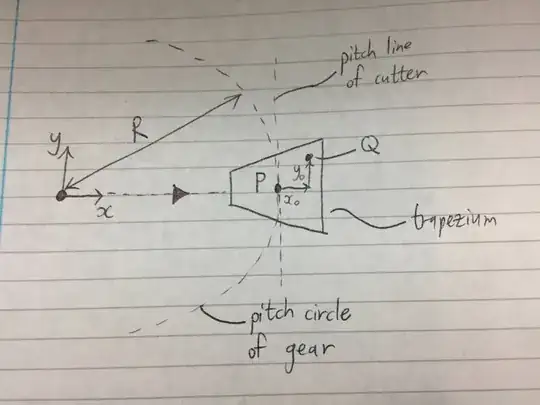 pitch line
of cutter
R
y
Q
P
y₀
x₀
x
trapezium
pitch circle
of gear